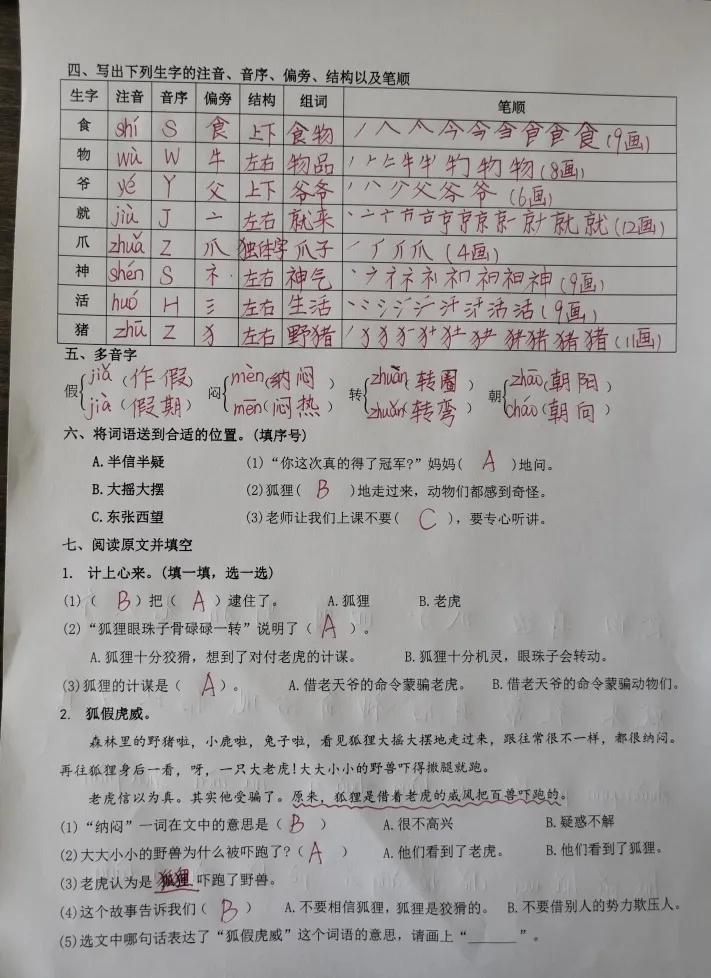 四、写出下列生字的注音、音序、偏旁、结构以及笔顺
生字 注音 音序 偏旁 结构 组词 笔顺
食 shí S 食 上下 食物 丿 人 𠆢 今 今 刍 食 食 食 (9画)
物 wù W 牛 左右 物品 牛 牜 物 物 物 (8画)
爷 yé Y 父 上下 爷爷 丿 八 父 父 爷 爷 (6画)
就 jiù J 亠 左右 就来 丶 亠 京 京 就 就 就 (12画)
爪 zhuǎ Z 爪 独体字 爪子 丿 厂 爪 爪 (4画)
神 shén S 礻 左右 神气 丶 礻 礻 神 (9画)
活 huó H 氵 左右 生活 丶 氵 汗 活 活 (9画)
猪 zhū Z 犭 左右 野猪 丿 犭 猪 猪 猪 猪 (11画)
五、多音字
假{ jiǎ (作假) 闷{ mèn(纳闷) 转{ zhuàn(转圈) 朝{ zhāo(朝阳)
jià (假期) mēn(闷热) zhuǎn(转弯) cháo(朝向)
六、将词语送到合适的位置。(填序号)
A.半信半疑 (1)“你这次真的得了冠军?”妈妈( A )地问。
B.大摇大摆 (2)狐狸( B )地走过来，动物们都感到奇怪。
C.东张西望 (3)老师让我们上课不要( C )，要专心听讲。
七、阅读原文并填空
1. 计上心来。(填一填，选一选)
(1)( B )把( A )逮住了。 A.狐狸 B.老虎
(2)“狐狸眼珠子骨碌碌一转”说明了( A )。
A.狐狸十分狡猾，想到了对付老虎的计谋。 B.狐狸十分机灵，眼珠子会转动。
(3)狐狸的计谋是( A )。 A.借老天爷的命令蒙骗老虎。 B.借老天爷的命令蒙骗动物们。
2. 狐假虎威。
森林里的野猪啦，小鹿啦，兔子啦，看见狐狸大摇大摆地走过来，跟往常很不一样，都很纳闷。
再往狐狸身后一看，呀，一只大老虎!大大小小的野兽吓得撒腿就跑。
老虎信以为真。其实他受骗了。原来，狐狸是借着老虎的威风把百兽吓跑的。
(1)“纳闷”一词在文中的意思是( B ) A.很不高兴 B.疑惑不解
(2)大大小小的野兽为什么被吓跑了?( A ) A.他们看到了老虎。 B.他们看到了狐狸。
(3)老虎认为是 狐狸 吓跑了野兽。
(4)这个故事告诉我们( B ) A.不要相信狐狸，狐狸是狡猾的。 B.不要借别人的势力欺压人。
(5)选文中哪句话表达了“狐假虎威”这个词语的意思，请画上“______”。